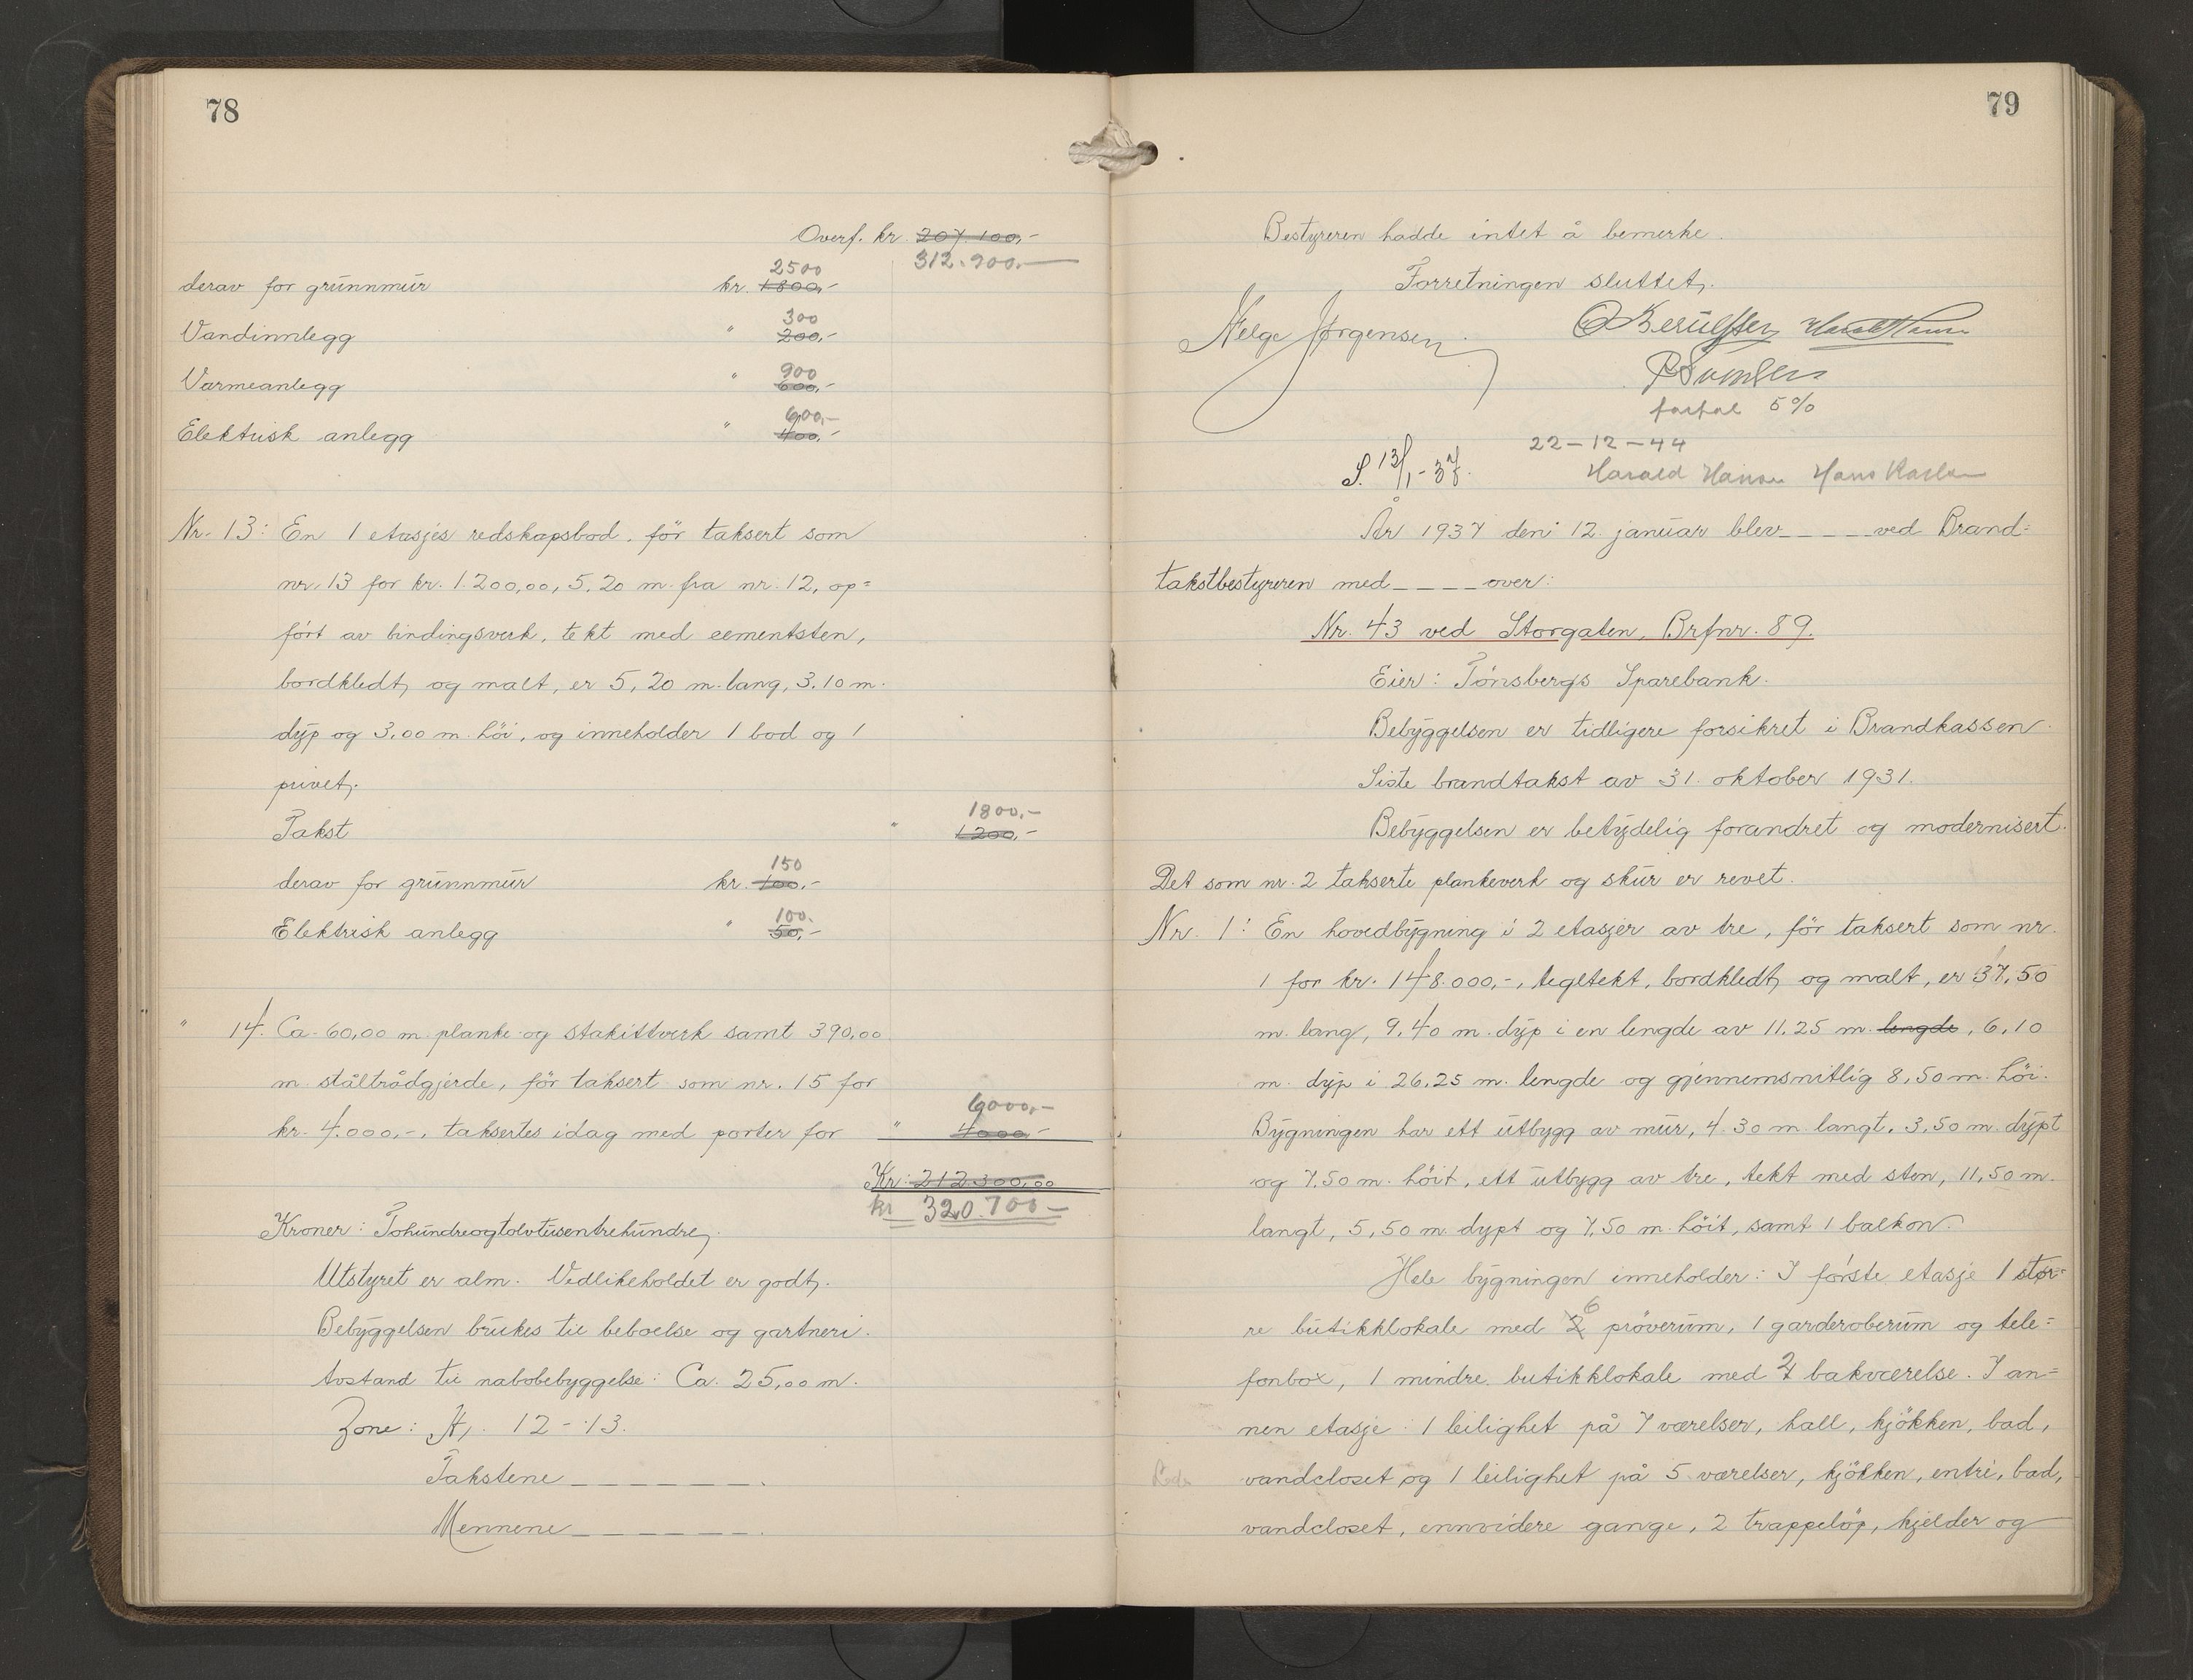 78
Overf. kr. 207.100,-
312.900.-
2500
derav for grunnmur kr. 1800,-
300
Vandinnlegg " 200,-
900
Varmeanlegg " 600,-
600,-
Elektrisk anlegg " 400,-
Nr. 13: En 1 etasjes redskapsbod, før taksert som
nr. 13 for kr. 1.200,00, 5,20 m. fra nr. 12, op=
ført av bindingsverk, tekt med cementsten,
bordkledt og malt, er 5,20 m. lang, 3.10 m.
dyp og 3,00 m. høi, og inneholder 1 bod og 1
privet.
1800,-
Takst " 1200,-
150
derav for grunnmur kr. 100,-
100.
Elektrisk anlegg " 50,-
" 14. Ca. 60,00 m. planke- og stakittverk samt 390,00
m. ståltrådgjerde, før taksert som nr. 15 for
6000,-
kr. 4.000,-, taksertes idag med porter for " 4000,-
Kr. 212300,00
kr 320.700-
Kroner: Tohundreogtolvtusentrehundre,
Utstyret er alm. Vedlikeholdet er godt.
Bebyggelsen brukes til beboelse og gartneri.
Avstand til nabobebyggelse: Ca. 25,00 m.
Zone: A,. 12-13.
Takstene _ _ _ _ _ _ _.
Mennene _ _ _ _ _ _ _.
79
Bestyreren hadde intet å bemerke.
Forretningen sluttet.
Helge Jørgensen
Harald Hansen
5%
22-12-44
S. 13/1-37.
Harald Hansen Hans
År 1937 den 12. januar blev _ _ _ _ ved Brand=
takstbestyreren med _ _ _ _ over:
Nr. 43 ved Storgaten, Brfnr. 89.
Eier: Tønsbergs Sparebank.
Bebyggelsen er tidligere forsikret i Brandkassen.
Siste brandtakst av 31. oktober 1931.
Bebyggelsen er betydelig forandret og modernisert.
Det som nr. 2 takserte plankeverk og skur er revet.
Nr. 1: En hovedbygning i 2 etasjer av tre, før taksert som nr.
1 for kr. 148.000,-, tegltekt, bordkledt og malt, er 37,50
m. lang, 9,40 m. dyp i en lengde av 11,25 m. lengde, 6,10
m. dyp i 26,25 m. lengde og gjennemsnitlig 8,50 m. høi.
Bygningen har ett utbygg av mur, 4.30 m. langt, 3,50 m. dypt
og 7,50 m. høit, ett utbygg av tre, tekt med sten, 11,50 m.
langt, 5,50 m. dypt og 7,50 m. høit, samt 1 balkon.
Hele bygningen inneholder: I første etasje 1 stør=
6
re butikklokale med 2 prøverum, 1 garderoberum og tele=
fonbox, 1 mindre butikklokale med 2 bakværelse. I an=
nen etasje: 1 leilighet på 7 værelser, hall, kjøkken, bad,
vandcloset og 1 leilighet på 5 værelser, kjøkken, entré, bad,
vandcloset, ennvidere gange, 2 trappeløp, kjelder og